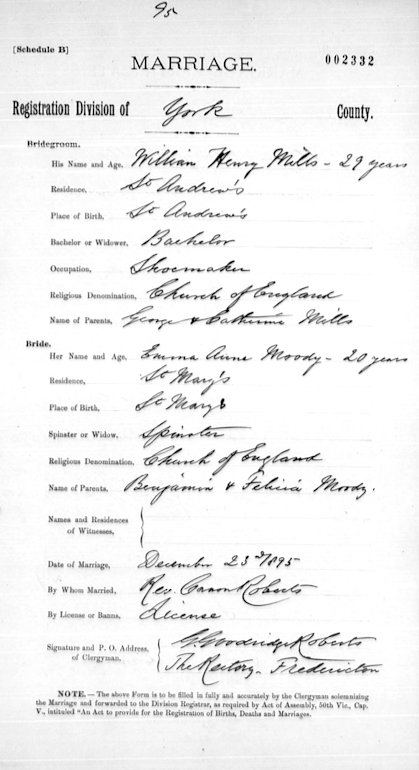 95
[Schedule B]
MARRIAGE.
002332
Registration Division of York County.
Bridegroom.
His Name and Age, William Henry Mills - 29 years
Residence, St Andrew's
Place of Birth, St Andrew's
Bachelor or Widower, Bachelor
Occupation, Shoemaker
Religious Denomination, Church of England
Name of Parents, George & Catherine Mills
Bride.
Her Name and Age, Emma Anne Moody - 20 years
Residence, St Mary's
Place of Birth, St Mary's
Spinster or Widow, Spinster
Religious Denomination, Church of England
Name of Parents, Benjamin & Felicia Moody.
Names and Residences
of Witnesses,
Date of Marriage, December 23d/1895
By Whom Married, Rev. Canon Roberts
By License or Banns, License
Signature and P. O. Address, G. Goodridge Roberts
of Clergyman. The Rectory - Fredericton
NOTE. — The above Form is to be filled in fully and accurately by the Clergyman solemnizing
the Marriage and forwarded to the Division Registrar, as required by Act of Assembly, 50th Vic., Cap.
V., intituled "An Act to provide for the Registration of Births, Deaths and Marriages.